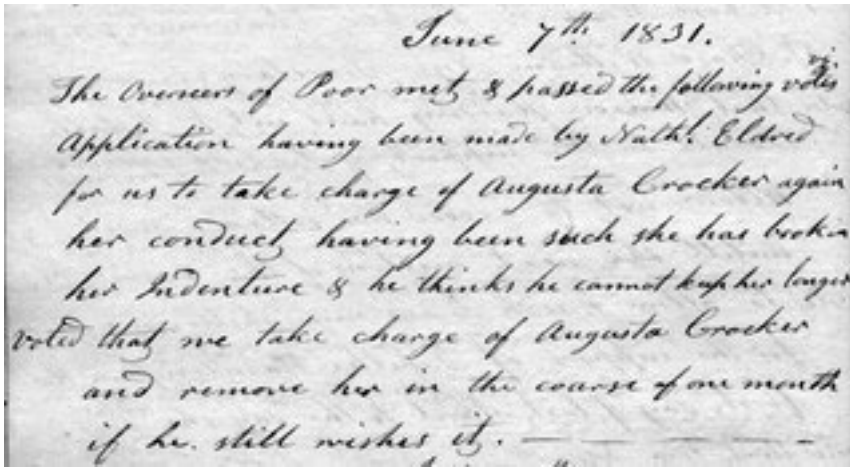 June 7th 1831.
The Overseers of Poor met & passed the following votes viz.
Application having been made by Nathl. Eldred
for us to take charge of Augusta Crocker again
her conduct having been such she has broken
her Indenture & he thinks he cannot keep her longer
voted that we take charge of Augusta Crocker
and remove her in the coarse of one month
if he still wishes it.